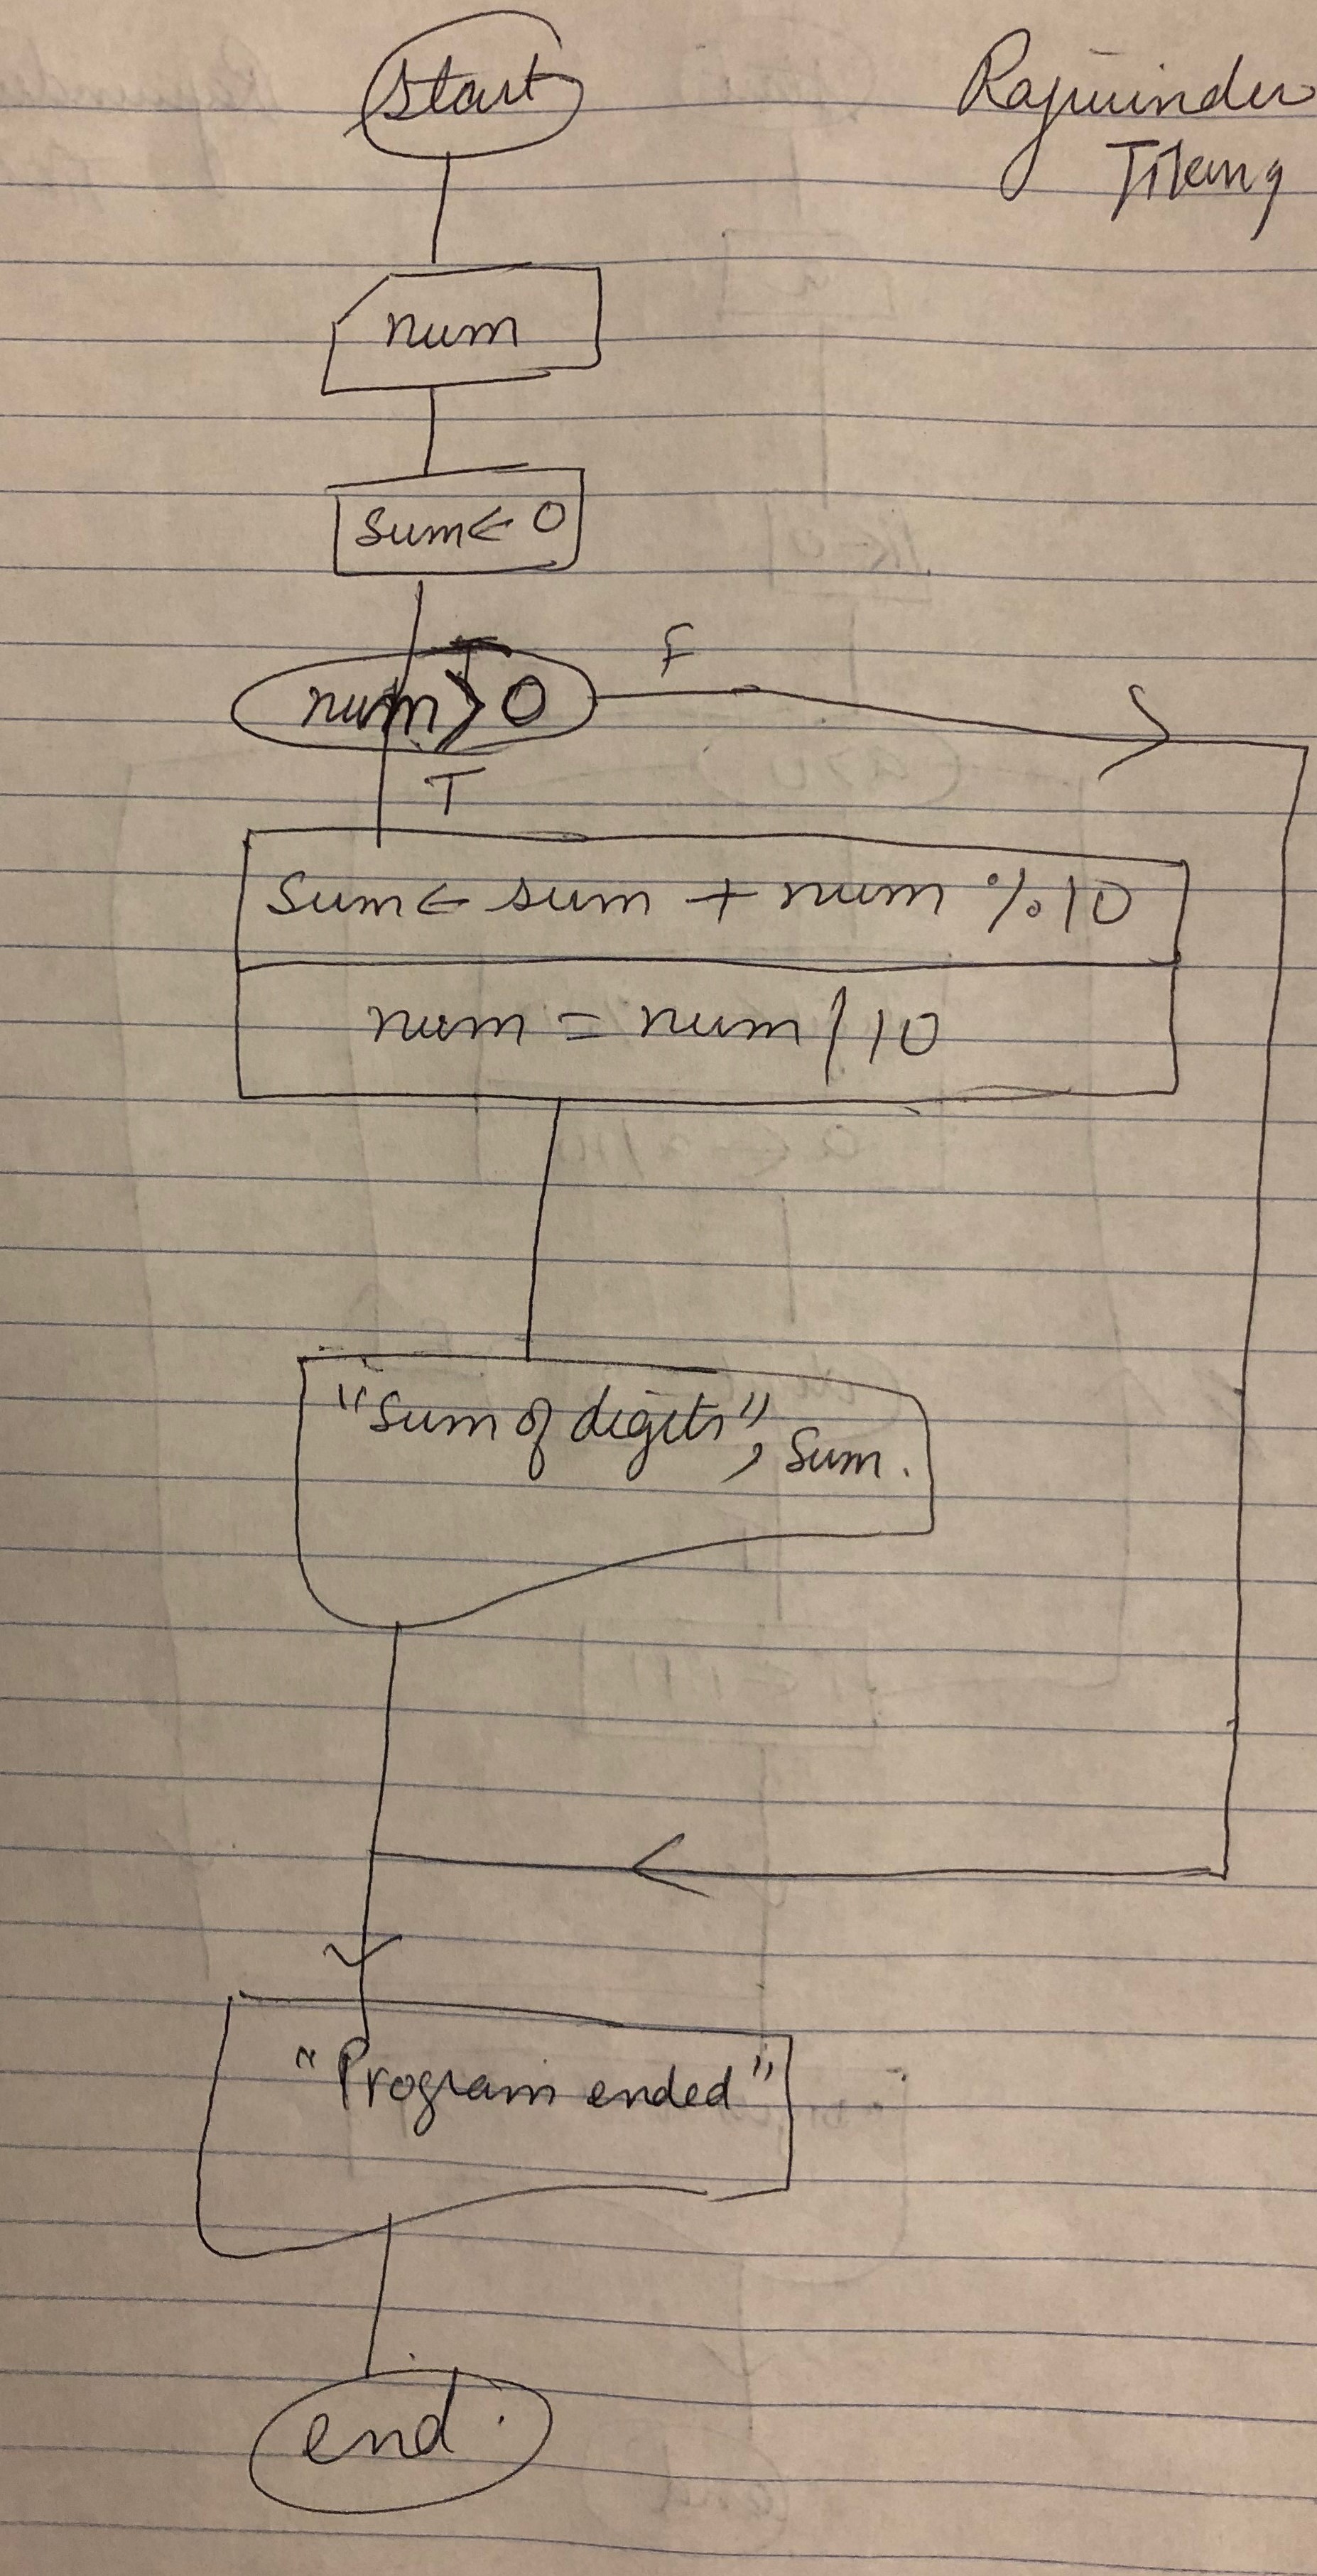 Start
Rajwinder
num
sum ← 0
num > 0
F
T
Sum ← sum + num % 10
num = num / 10
"Sum of digits", Sum.
"Program ended"
end.